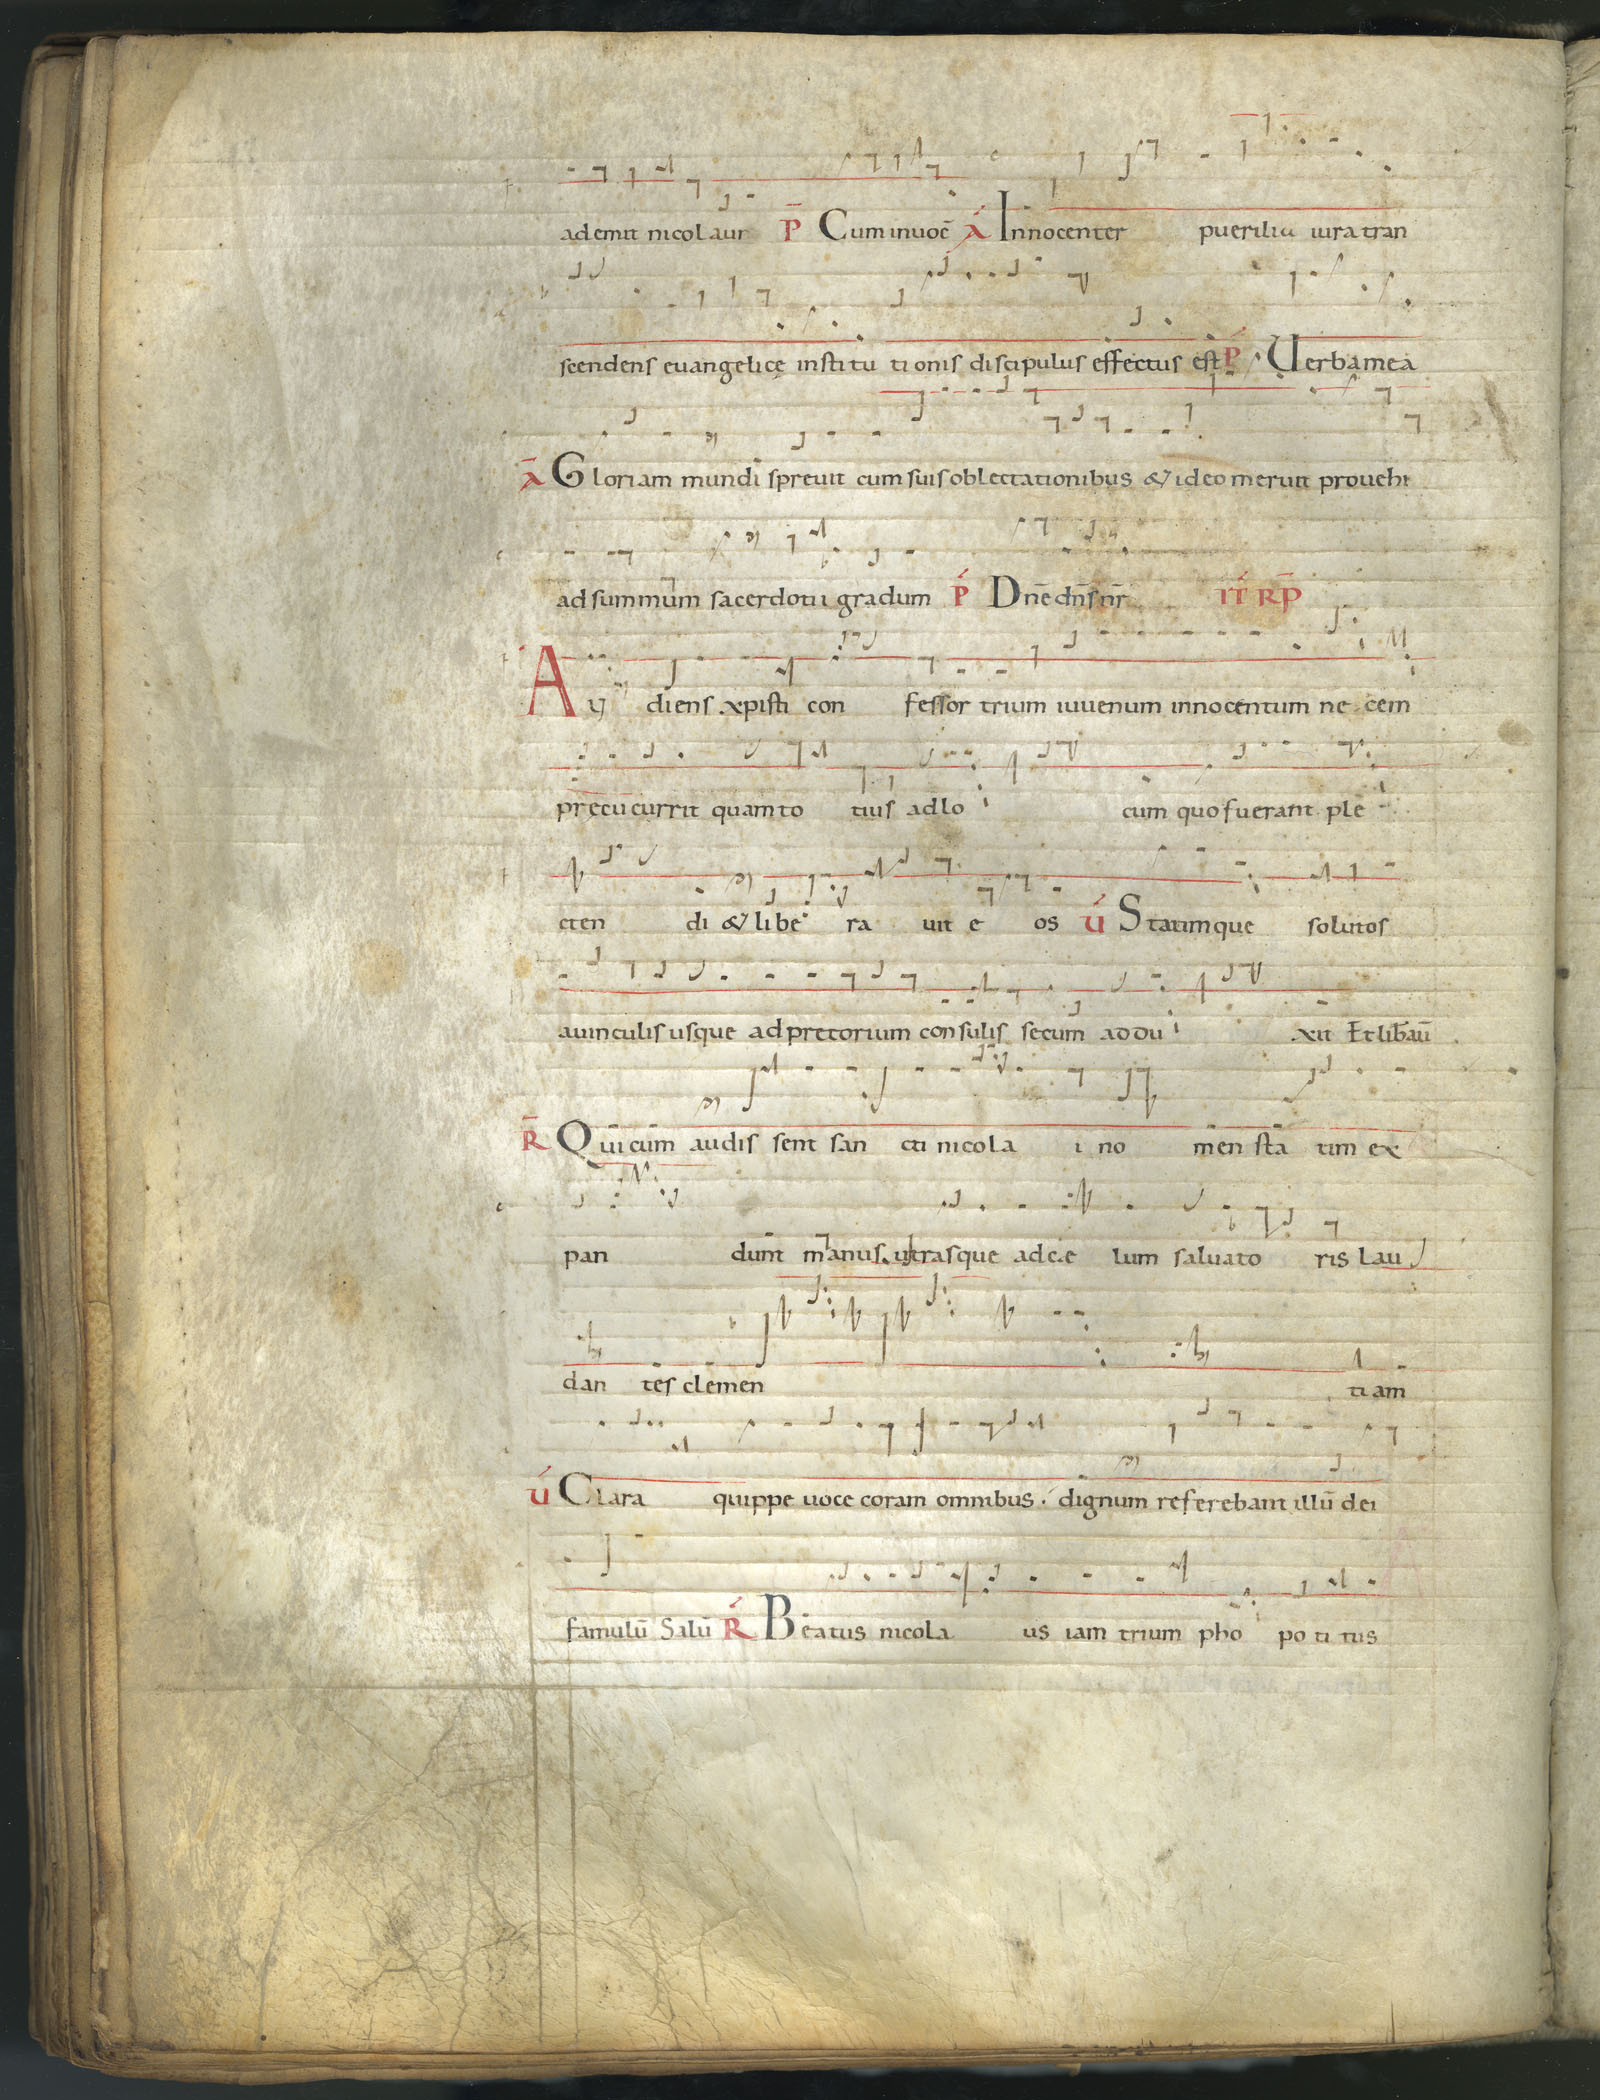 ademit nicolaus P̄ Cuminuoc̄ Á Innocenter puerilia iura tran
scendens euangelicę institu tionis discipulus effectus est Ṕ Uerba mea
Ā Gloriam mundi spreuit cum suis oblectationibus & ideo meruit prouehi
ad summum sacerdotii gradum Ṕ Dn̄e dn̄s nr̄ IT́ RP̄
Au diens xpisti con fessor trium iuuenum innocentum ne cem
pręcucurrit quamto tius adlo cum quo fuerant ple
cten di & libe ra uit e os Ú Statimque solutos
auinculis usque ad pretorium consulis secum addu xit Et lib̄aū
R̄ Quicum audis sent san cti nicola i no men sta tim ex
pan dunt manus utrasque ad cæ lum saluato ris lau
dan tes clemen tiam
Ú Clara quippe uoce coram omnibus · dignum referebant illū dei
famulū Salū Ŕ Beatus nicola us iam trium pho po ti tus